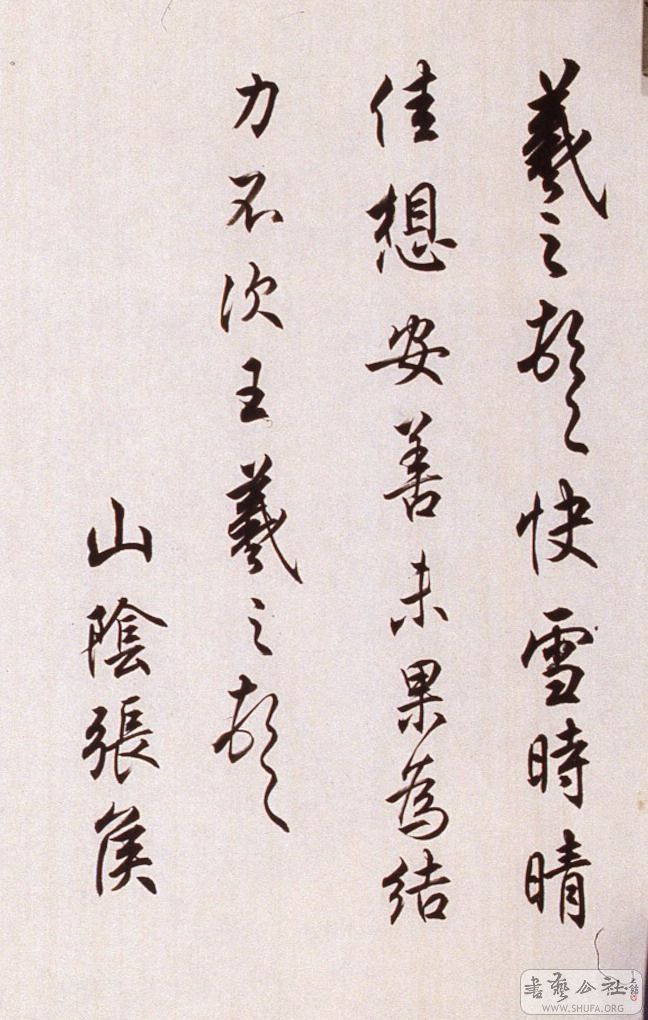 羲之頓首快雪時晴
佳想安善未果為結
力不次王羲之頓首
山陰張侯
書藝公社
WWW.SHUFA.ORG